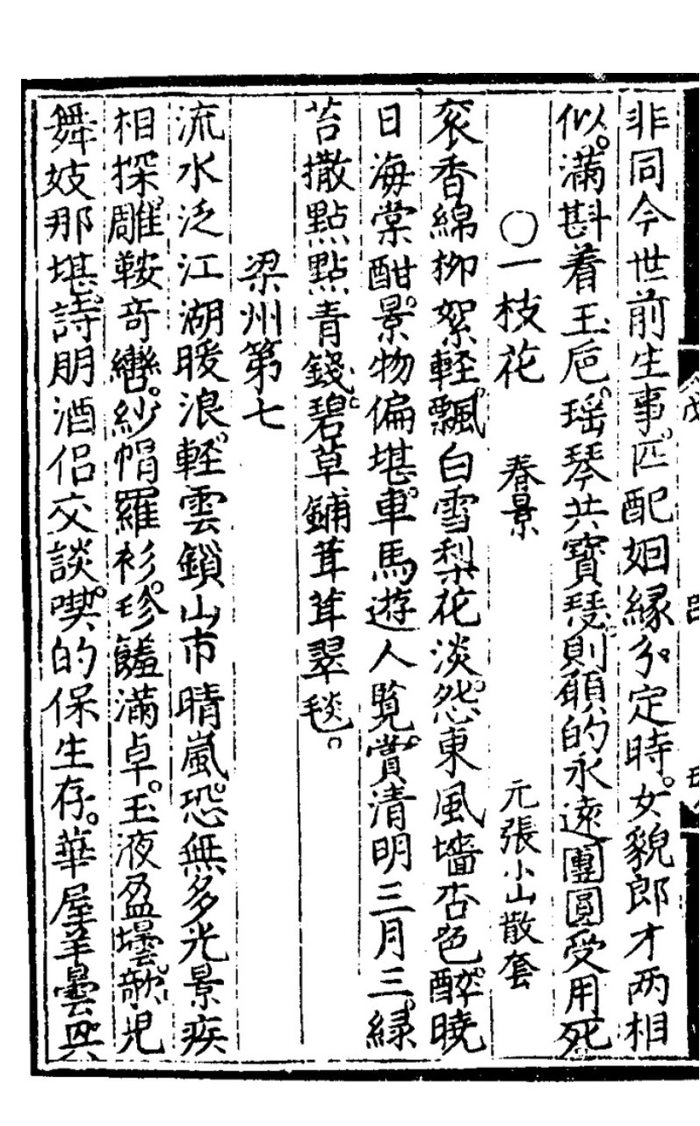 非同今世前生事。匹配姻緣分定時。女貌郎才两相
似。滿斟着玉巵。瑶琴共寶瑟。則願的永遠團圓受用死
〇一枝花 春景 元張小山散套
衮香綿柳絮輕。飄白雪梨花淡。怨東風墻杏色。醉曉
日海棠酣。景物偏堪。車馬遊人覧。賞清明三月三。緑
苔撒點點青錢。碧草鋪茸茸翠毯。
梁州第七
流水泛江湖暖浪。輕雲鎖山市晴嵐。恐無多光景疾
相探。雕鞍奇轡。紗帽羅衫。珍饈滿卓。玉液盈壜。歌児
舞妓那堪。詩朋酒侣交談。喫的保生存。華屋羊曇